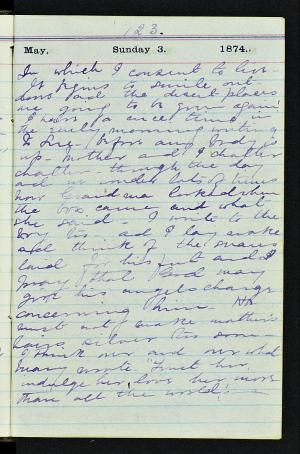 123.
May. Sunday 3. 1874.
In which I consent to live.
It begins to smile out
doors and the desert places
are going to be green again.
I have a nice time in
the early morning writing
to - before any body is
up - Mother and I chatter
chatter - through the day
and we wonder lots of times
how Grandma looked when
the box came and what
she said - I write to the
boy and I lay awake
and think of the snares
laid for his feet and I
pray that God may
give his angels charge
concerning him. He
must not make mother's
hairs silver too soon.
I think over and over what
Mary wrote. Trust her,
indulge her, love her more
than all the world!